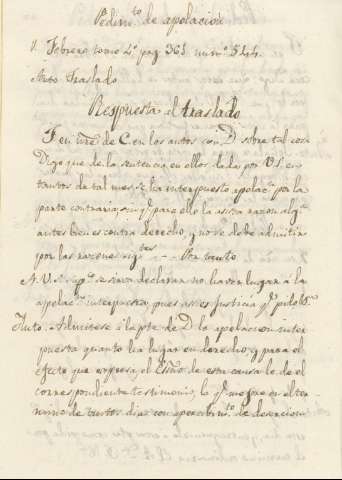 Pedim.to de apelacion
V. Febrero tomo 4.º pag 361 num.º 544.
Auto Traslado
Respuesta al traslado
F en nre de C. en los autos con D. sobre tal cosa
Digo que de la sentencia en ellos dada por V.S. en
tantos de tal mes se ha interpuesto apelac.n por la
parte contraria, sin q.e para ello la asista razon alg.a
antes bien es contra derecho, y no se debe admitir
por las razones sig.tes - - Por tanto
A.V.S. sup.co se sirva declarar no haver lugar á la
apelac.n interpuesta, pues asi es justicia q.e pido &.a
Auto. Admitese á la p.te de D. la apelacion inter
puesta quanto ha lugar en derecho, y para el
efecto que expresa, el Essno. de esta causa le dé el
correspondiente testimonio, lo q.e mejore en el ter
mino de tantos dias con apercibim.to de desercion